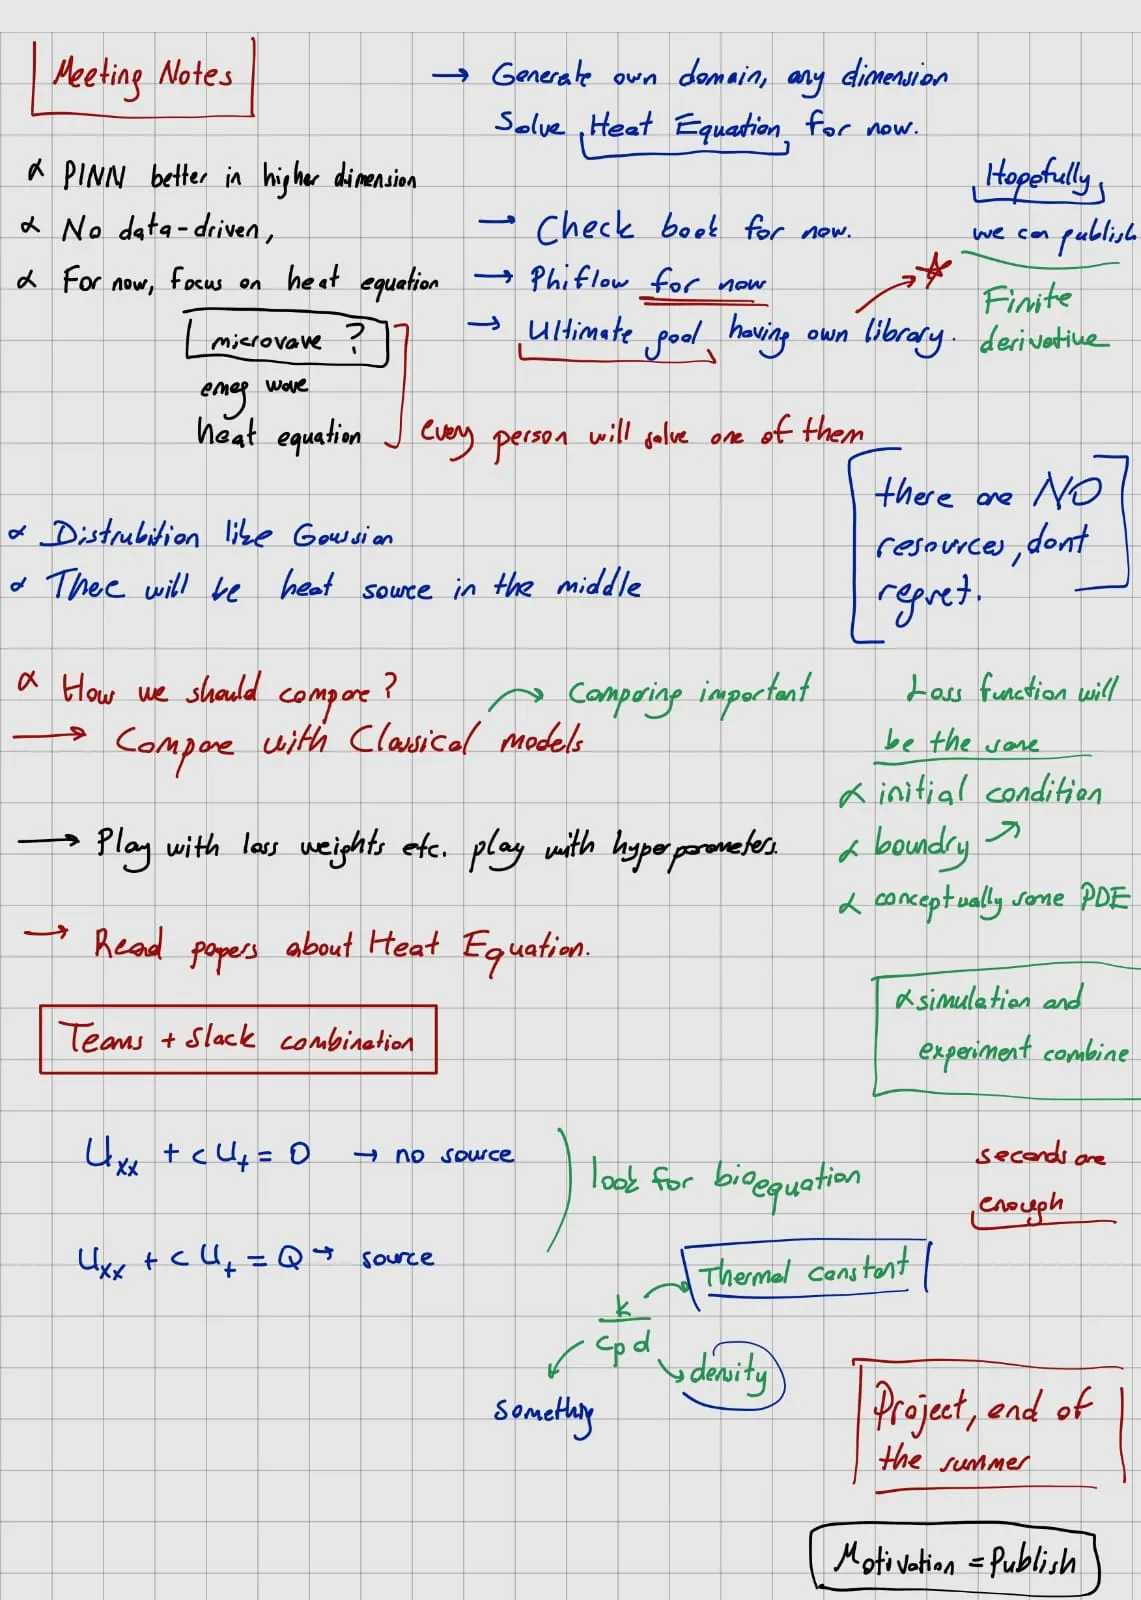 Meeting Notes
→ Generate own domain, any dimension
Solve Heat Equation for now.
α PINN better in higher dimension
α No data-driven,
α For now, focus on heat equation
microvave ?
emeg wave
heat equation
every person will solve one of them
→ Check book for now.
→ Phiflow for now
→ Ultimate goal having own library.
Hopefully
we can publish
Finite
derivative
there are NO
resources, dont
regret.
α Distrubition like Gaussian
α There will be heat source in the middle
α How we should compare?
→ Compare with Classical models
→ Comparing important
Loss function will
be the same
α initial condition
α boundry
α conceptually same PDE
→ Play with loss weights etc. play with hyperparameters.
→ Read papers about Heat Equation.
α simulation and
experiment combine
Teams + Slack combination
Uxx + c Ut = 0 → no source
Uxx + c Ut = Q → source
look for bioequation
seconds are
enough
Thermal constant
k
cp d
density
somethıg
Project, end of
the summer
Motivation = Publish